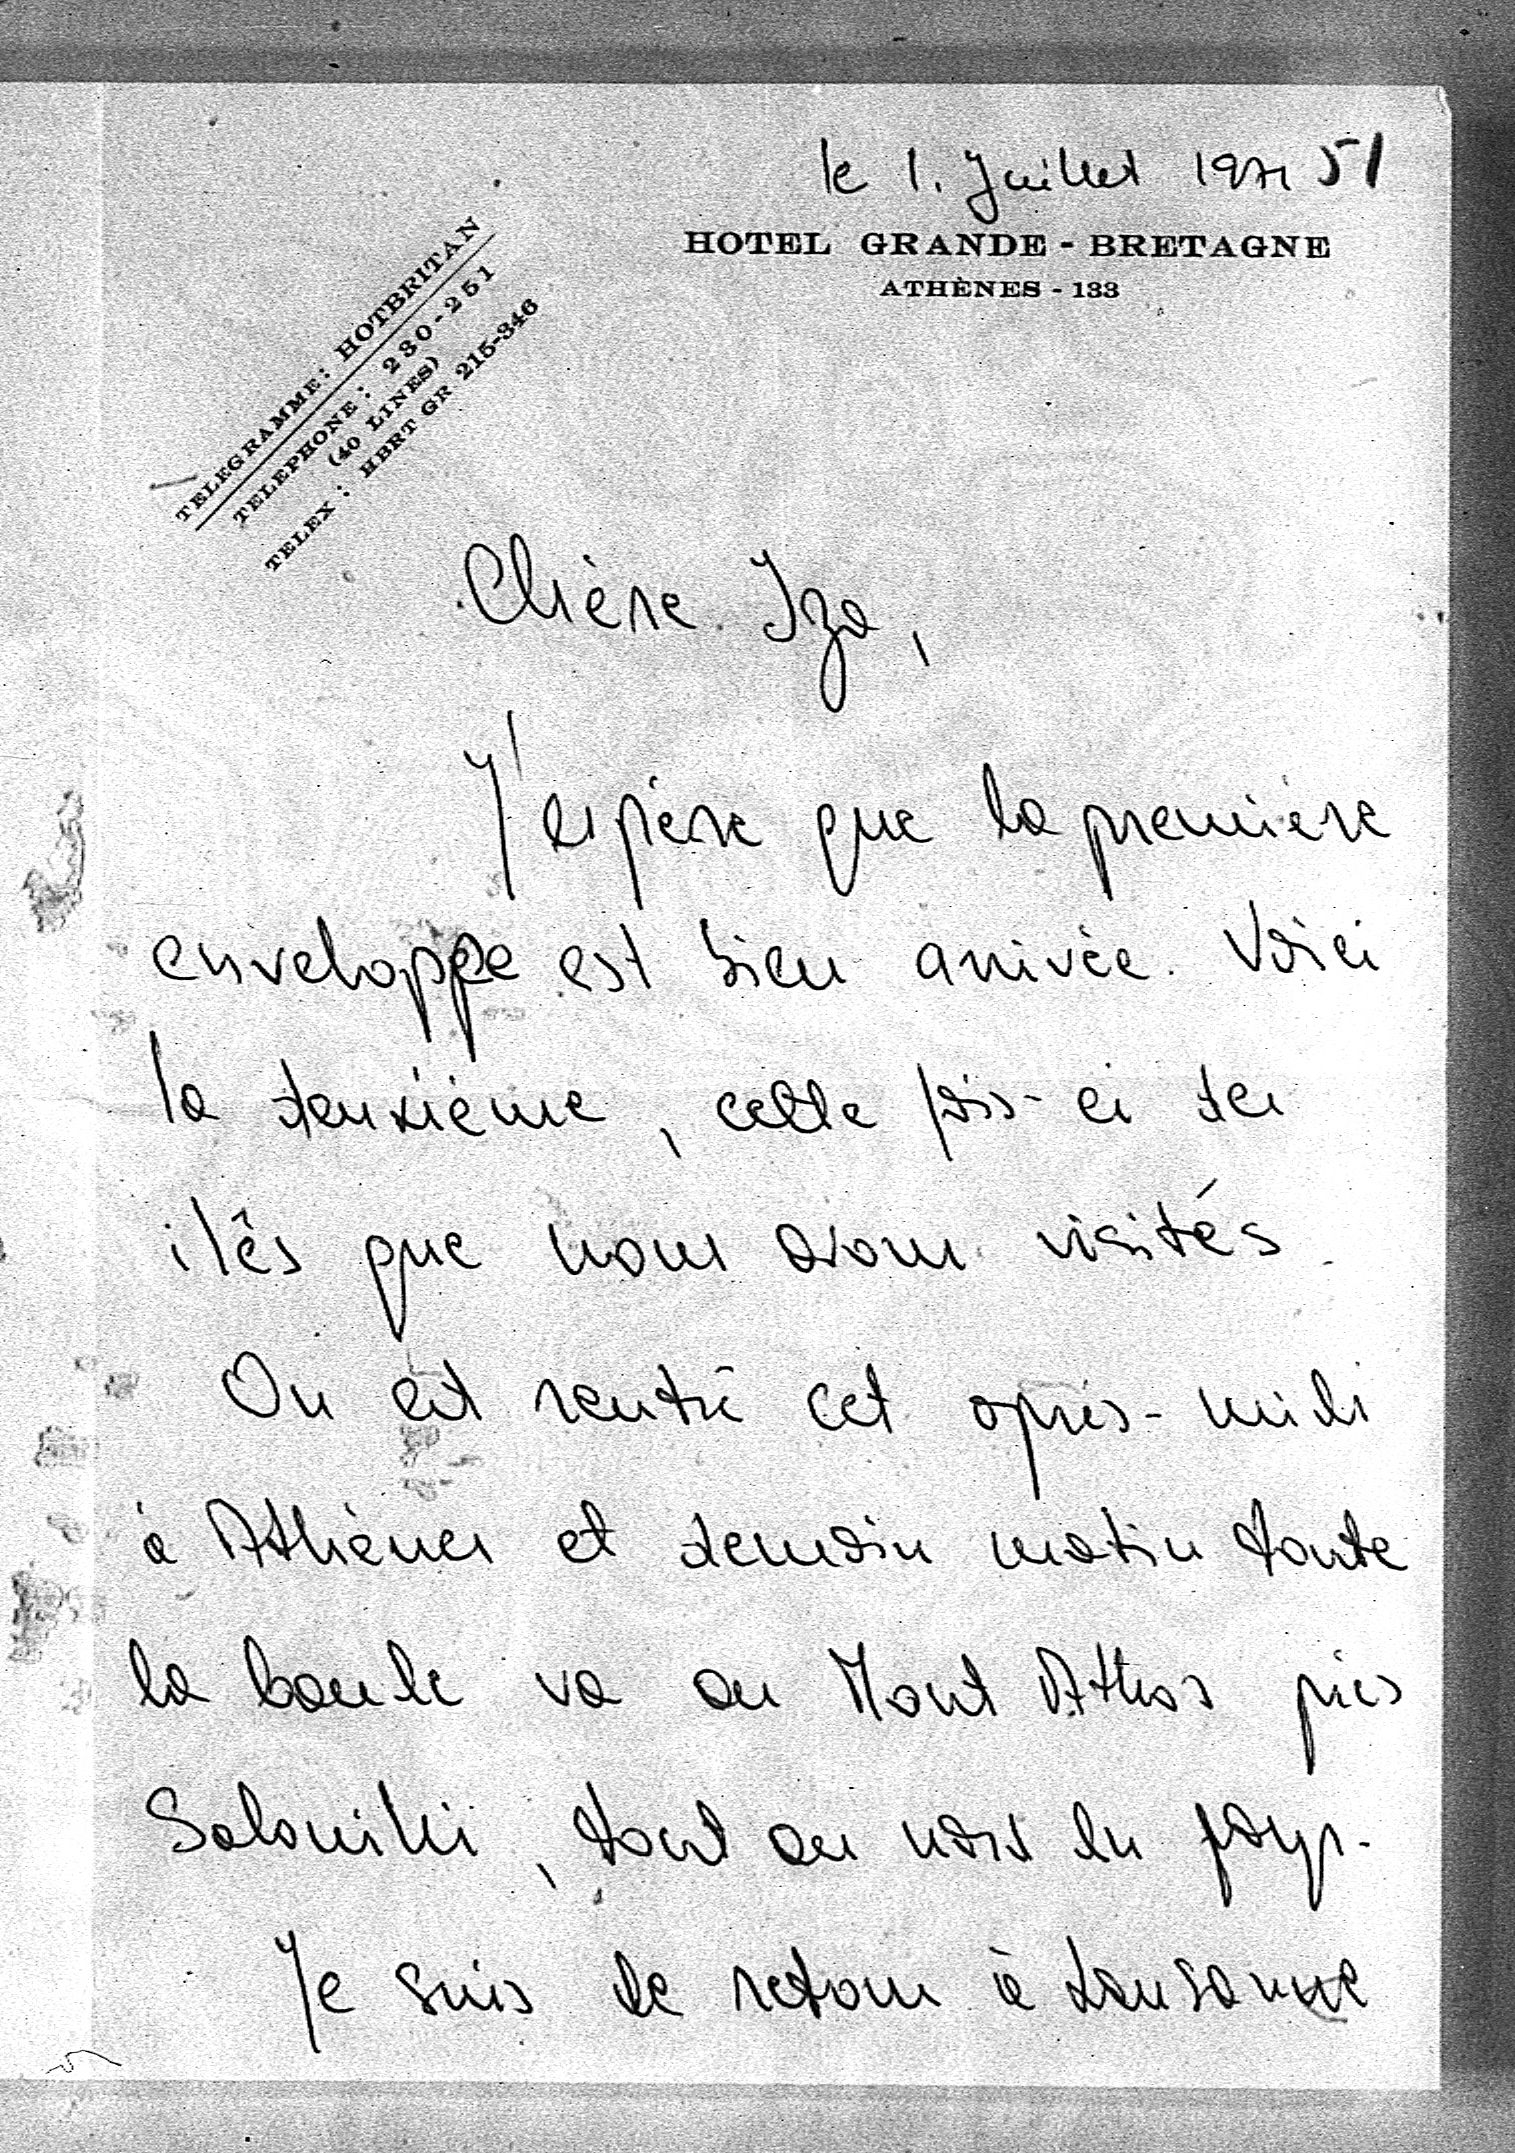 le 1. Juillet 1971 51
HOTEL GRANDE - BRETAGNE
ATHÈNES - 133
TELEGRAMME: HOTBRITAN
TELEPHONE: 230-251
(40 LINES)
TELEX: HBRT GR 215-346
Chère Iza,
J'espère que la première
enveloppe est bien arrivée. Voici
la deuxième, cette fois-ci des
ilês que nous avons visités.
On est rentré cet après-midi
à Athènes et demain matin toute
la bande va au Mont Athos près
Saloniki, tout au nord du pays.
Je suis de retour à Lausanne